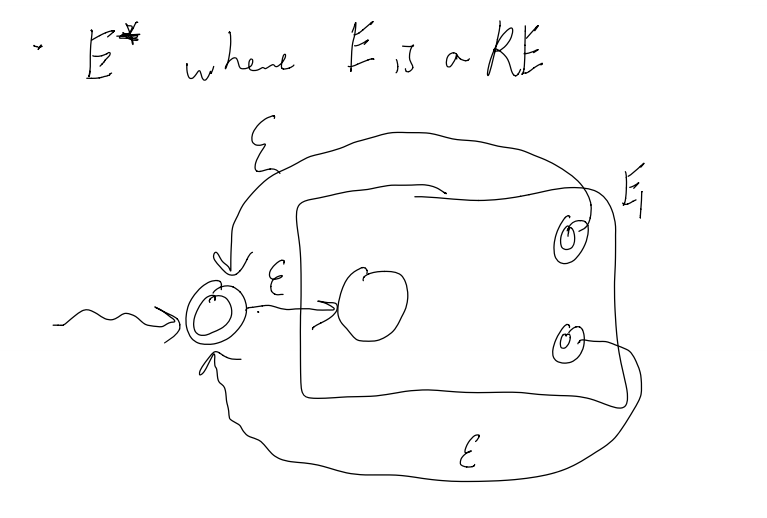 · E* where E is a RE
ε
E₁
ε
ε